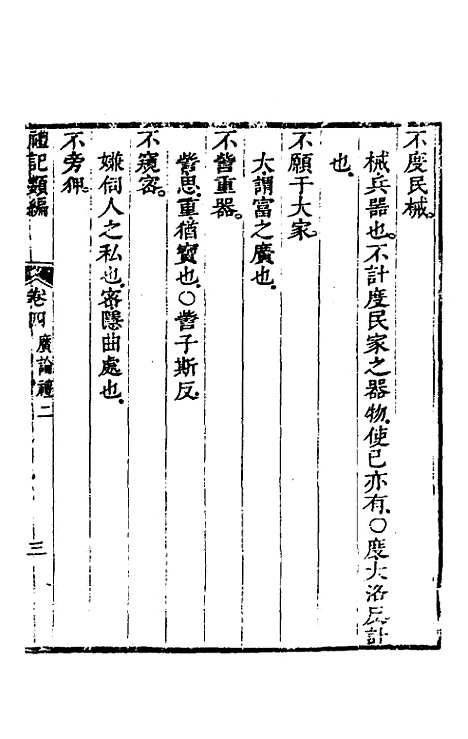 不度民械。
械兵器也。不計度民家之器物使已亦有。〇度大洛反計
也。
不願于大家。
大謂富之廣也。
不訾重器。
訾思重猶寶也。〇訾子斯反。
不窺密。
嫌伺人之私也。密隱曲處也。
不旁狎。
禮記類編
卷四
廣論禮二
三